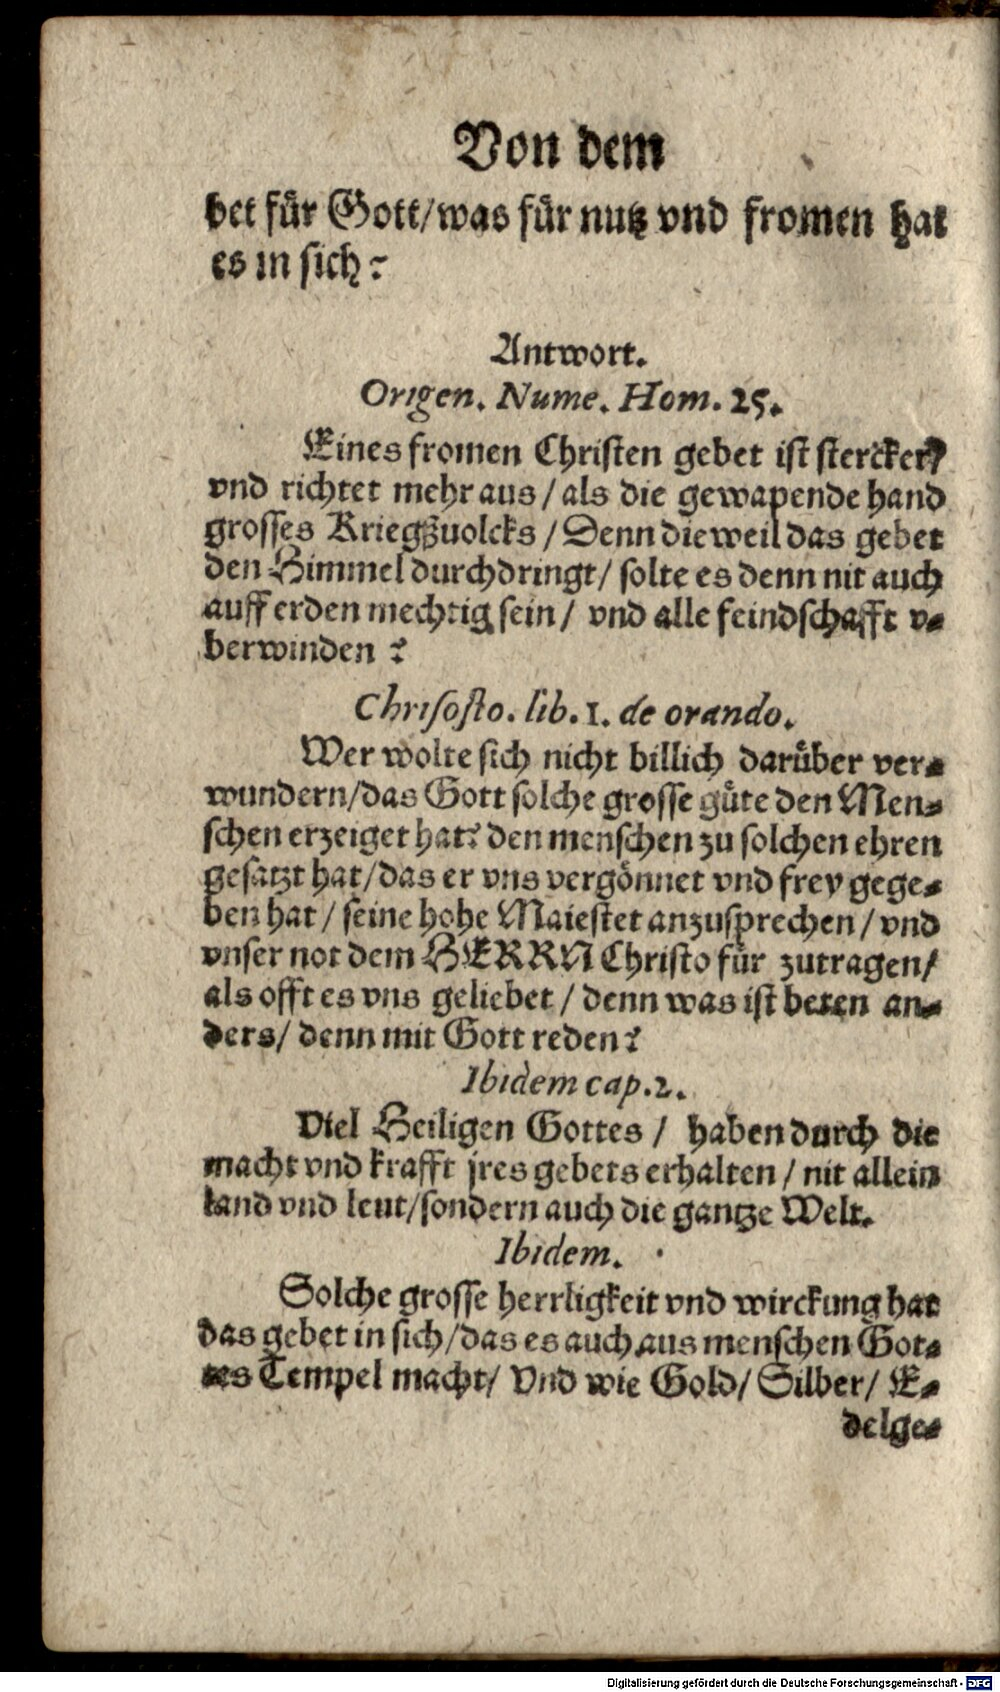 Von dem
bet für Gott/was für nutz vnd fromen hat
es in sich?
Antwort.
Origen. Nume. Hom. 25.
Eines fromen Christen gebet ist stercker/
vnd richtet mehr aus/als die gewapende hand
grosses Kriegßuolcks/Denn dieweil das gebet
den Himmel durchdringt/ solte es denn nit auch
auff erden mechtig sein/ vnd alle feindschafft v-
berwinden?
Chrisosto. lib. 1. de orando.
Wer wolte sich nicht billich darüber ver-
wundern/das Gott solche grosse güte den Men-
schen erzeiget hat? den menschen zu solchen ehren
gesatzt hat/das er vns vergönnet vnd frey gege-
ben hat/ seine hohe Maiestet anzusprechen/vnd
vnser not dem HERRN Christo für zutragen/
als offt es vns geliebet/denn was ist beten an-
ders/ denn mit Gott reden?
Ibidem cap. 2.
Viel Heiligen Gottes/ haben durch die
macht vnd krafft jres gebets erhalten/nit allein
land vnd leut/sondern auch die gantze Welt.
Ibidem.
Solche grosse herrligkeit vnd wirckung hat
das gebet in sich/das es auch aus menschen Got-
tes Tempel macht/ Vnd wie Gold/ Silber/ E-
delge-
Digitalisierung gefördert durch die Deutsche Forschungsgemeinschaft - DFG